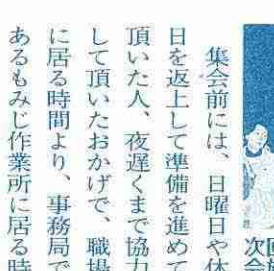 集会前には、日曜日や休
日を返上して準備を進めて
頂いた人、夜遅くまで協力
して頂いたおかげで、職場
に居る時間より、事務局で
あるもみじ作業所に居る時
次回
会